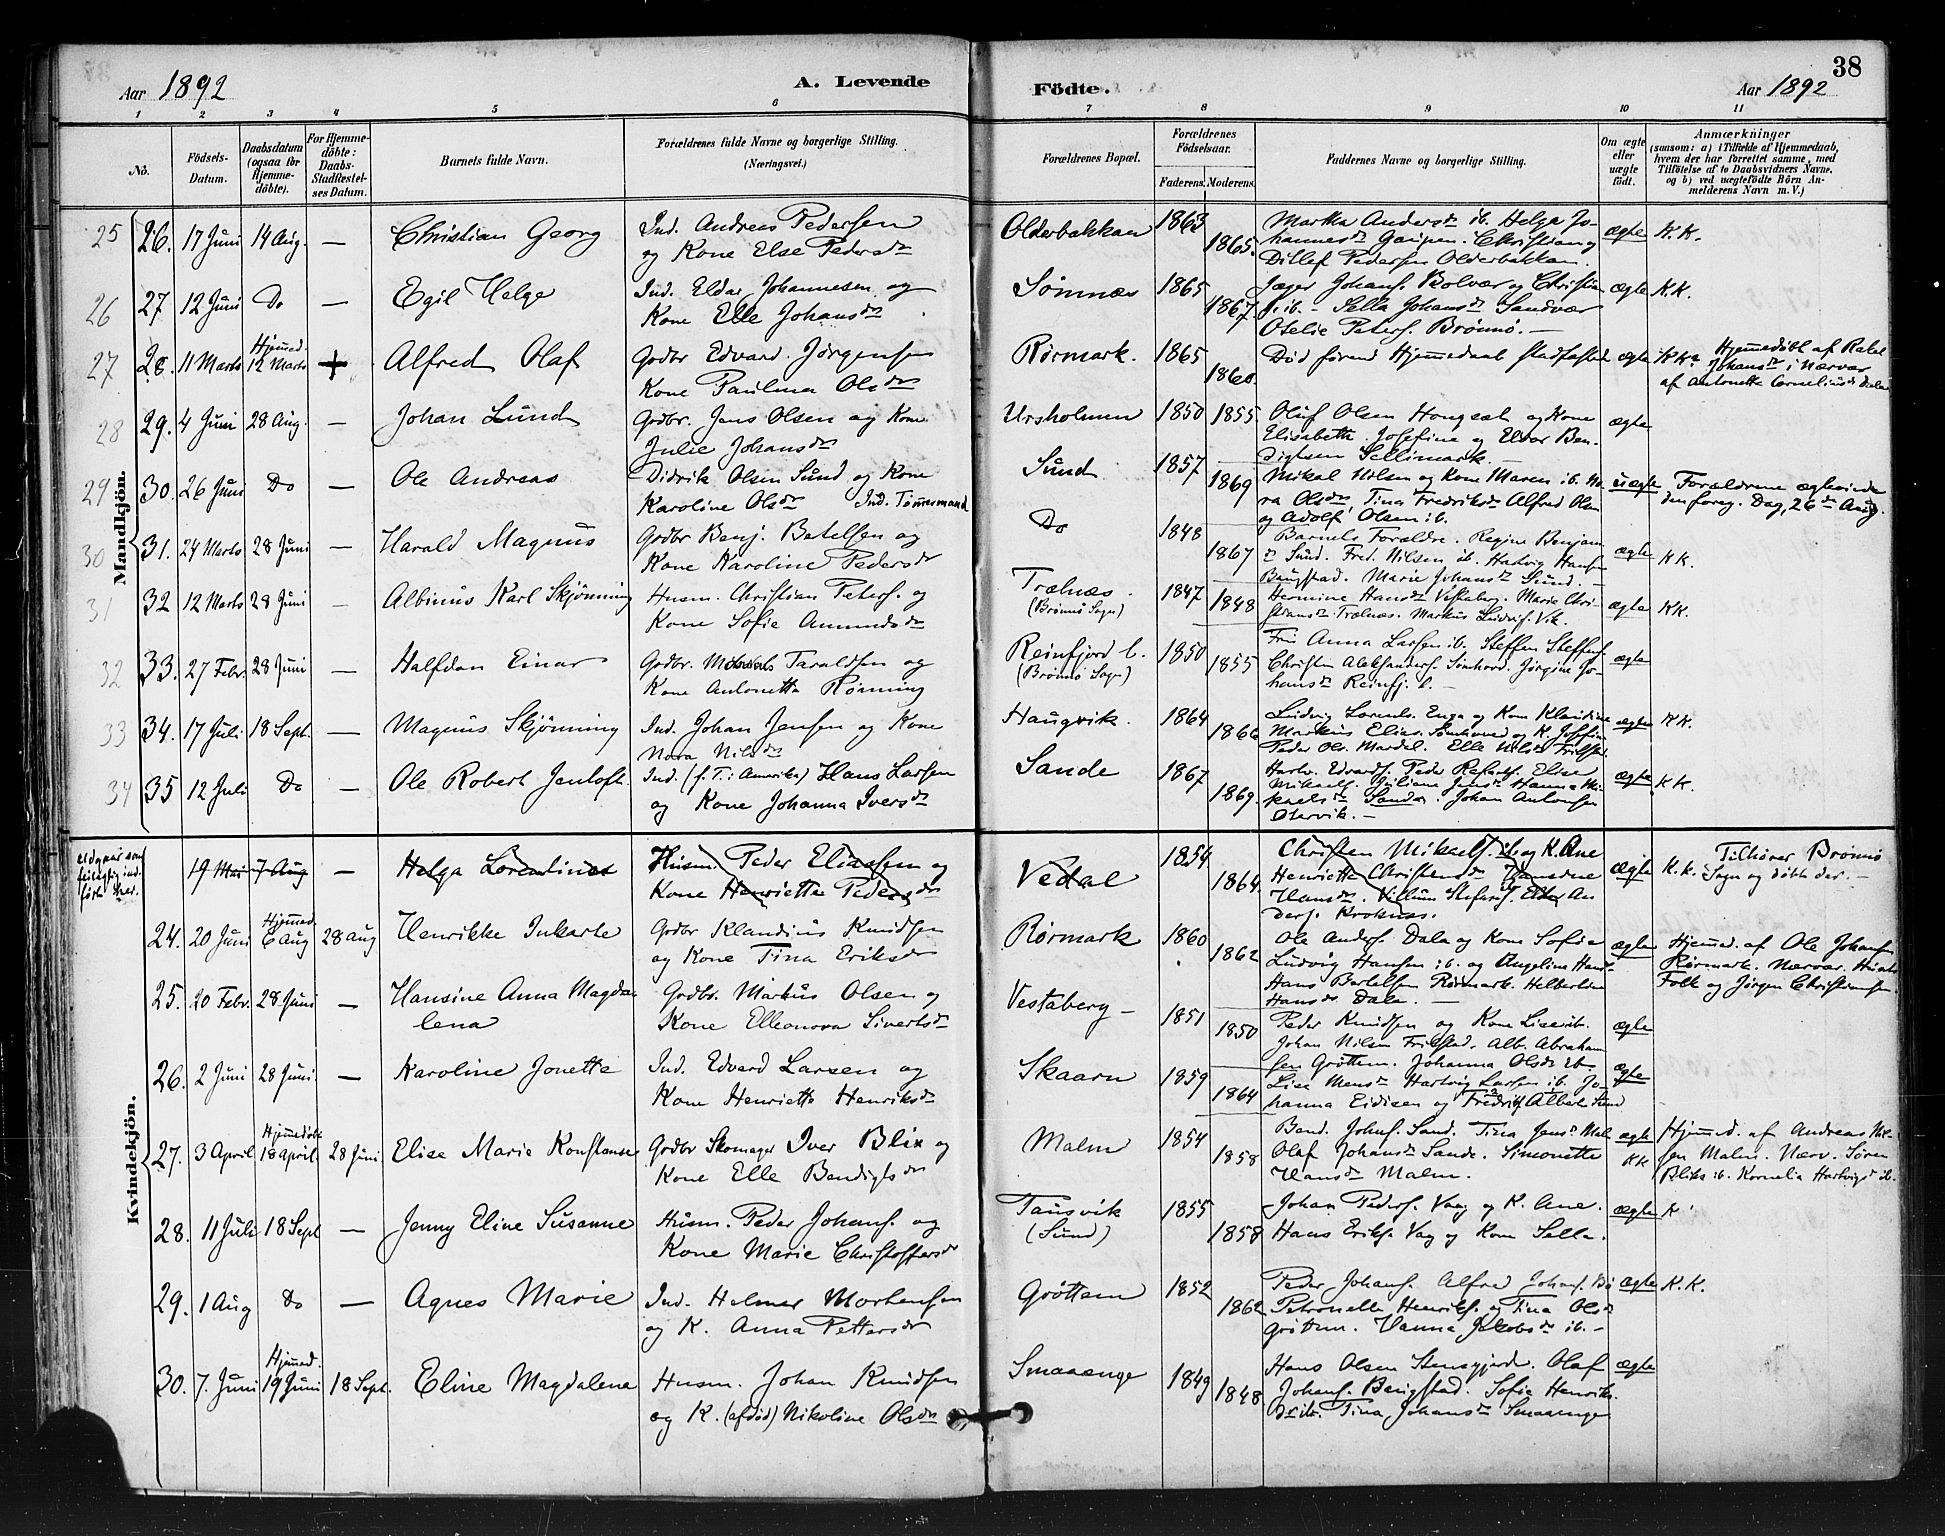 Aar 1892
A. Levende
Födte.
Aar 1892
38
1 2 3 4 5 6 7 8 9 10 11
No.
Födsels-Datum.
Daabsdatum (ogsaa for Hjemmedöbte).
For Hjemmedöbte: Daabs-Stadfæstelses Datum.
Barnets fulde Navn.
Forældrenes fulde Navne og borgerlige Stilling.
(Næringsvei.)
Forældrenes Bopæl.
Forældrenes Födselsaar.
Faderens. Moderens.
Faddernes Navne og borgerlige Stilling.
Om ægte eller uægte födt.
Anmærkninger
(saasom: a) i Tilfælde af Hjemmedaab, hvem der har forrettet samme, med Tilföielse af to Daabsvidners Navne, og b) ved uægtefödte Börn Anmelderens Navn m. V.)
Mandkjön.
25 26. 17 Juni 14 Aug. — Christian Georg Ind. Andreas Pedersen
og Kone Else Pedersdr
Olderbakkan 1863 1865. Martha Andersdr ib. Helga Johannesdr Gaupen. Christian og
Ditlef Pedersen Olderbakkan. ægte K.K.
26 27 12 Juni Do — Egil Helge Ind. Eldar Johannesen og
Kone Elle Johansdr
Sömnæs 1865 1867 Jæger Johans. Bolvær og Christian
ib. – Sella Johansdr Sandvær
Otelie Peters. Brönnö. — ægte K.K.
27 28. 11 Marts Hjemmed. 12 Marts + Alfred Olaf Godbr Edvard Jörgensen
Kone Paulina Olsdr
Rörmark. 1865 1860. Död förend Hjemmedaab stadfæsted ægte KK. Hjemmedöbt af Rakel
Johansdr i Nærvær
af Antonetta Corneliusdr Dale
28 29. 4 Juni 28 Aug. — Johan Lund Godbr. Jens Olsen og Kone
Julie Johansdr
Ursholmen 1850 1855. Oluf Olsen Hongsæt og Kone
Elisabeth. Josefine og Eldar Bendigtsen Sellimark — ægte
29 30. 26 Juni Do — Ole Andreas Didrik Olsen Sund og Kone
Karoline Olsdr Ind. Tömmermand
Sund 1857 1869 Mikal Nilsen og Kone Maren ib.
Olsdr Tina Fredriksdr Alfred Olsen
og Adolf Olsen ib. uægte Forældrene ægteviede
den foreg. Dag, 26de Aug.
30 31. 24 Marts 28 Juni — Harald Magnus Godbr Benj. Batelsen og
Kone Karoline Pedersdr
Do 1848 1867 Barnets Forældre. Regine Benjamdr Sund. Fred. Nilsen ib. Hartvig Hansen
Baugstad. Marie Johansdr Sund. — ægte KK.
31 32 12 Marts 28 Juni — Albinus Karl Skjönning Husm. Christian Peters. og
Kone Sofie Amundsdr
Trælnæs.
(Brönnö Sogn) 1847 1848 Hermine Hansdr Vestaberg. Marie Christiansdr Trælnæs. Markus Ludvigs. Vik. ægte KK.
32 33. 27 Febr. 28 Juni — Halfdan Einar Godbr. Taraldsen og
Kone Antonetta Rönning
Reinfjord
(Brönnö Sogn) 1850 1855 Fru Anna Larsen ib. Steffen Steffens.
Christen Aleksanders. Sömhovd. Jörgine Johansdr Reinfj. — ægte
33 34. 17 Juli 18 Sept. — Magnus Skjönning Ind. Johan Jensen og Kone
Nora Nilsdr
Haugvik. 1864 1866 Ludvig Lorents. Enga og Kone Klaudine
Markus Elias. Sömhovd og K. Josefine
Peder Ols. Mardal. Elle Nilsdr ægte KK.
34 35 12 Juli Do — Ole Robert Jentoft Ind. (f. T. i Amerika) Hans Larsen
og Kone Johanna Iversdr
Sande 1867 1869. Hartv. Edvards. Peder Elise
Mikaels. Juliane Jensdr Hanna Mikaelsdr Sande. Johan Antonsen
— ægte KK.
Kvindekjön.
udgaar som feilagtig indfört her.
19 Mai 7 Aug — Helga Lorentine Husm. Peder Eliassen og
Kone Henriette Pedersdr
Vedal 1854 1864 Christen Mikaels. ib. og K. Ane
Henriette Christensdr
Hansdr. Villum Stefans. Anders. Kroknæs. ægte K.K. Tilhörer Brönnö
Sogn og döbt der. —
24. 20 Juni Hjemmed. 6 Aug 28 Aug Henrikke Inkarte Godbr Klaudius Knudsen
og Kone Tina Eriksdr
Rörmark 1860 1862 Ole Anders. Dale og Kone Sofie
Ludvig Hansen ib. og Angeline Hansdr
Hans Bartelsen Rörmark. Helbertine
Hansdr Dale. — ægte Hjemmed. af Ole Johansen
Rörmark. Nærvær.
Folk og Jörgen Christiansen.
25. 20 Febr. 28 Juni — Hansine Anna Magdalena Godbr. Markus Olsen og
Kone Elleonora Sivertsdr
Vestaberg — 1851 1850 Peder Knudsen og Kone
Johan Nilsen. Alb. Abrahamsen Gröttem. Johanna Olsdr ægte
26. 2 Juni 28 Juni. — Karoline Jonette Ind. Edvard Larsen og
Kone Henriette Henriksdr
Skaarn 1859 1864 Lise Mensdr Hartvig Larsen ib. Johanna Eidisen og Fredrik Albert Sund ægte
27. 3 April Hjemmedöbt 18 April. 28 Juni. Elise Marie Konstanse Godbr Skomager Iver Blix og
Kone Elle Bendigtsdr
Malm 1854 1858 Band. Johns. Sand. Tina Jensdr Malm
Olaf Johansdr Sande. Simonette
Hansdr Malm. ægte KK Hjemmed. af Andreas Nilsen Malm. Nærv. Sören
Bliks ib. Kornelia Hartvigsdr ib.
28. 11 Juli 18 Sept — Jenny Eline Susanne Husm. Peder Johans. og
Kone Marie Christoffersdr
Tausvik
(Sund) 1855 1858 Johan Peders. Vaag og K. Ane.
Hans Eriks. Vaag og Kone Sella. ægte K
29. 1 Aug Do — Agnes Marie Ind. Helmer Mortensen
og K. Anna Pettersdr
Gröttem 1852 1862 Peder Johans. Alfred Johans.
Petronelle Henriks. og Tina Olsdr
Gröttem. Hanna Jakobsdr ib. — ægte K.K.
30. 7. Juni Hjemmed. 19 Juni 18 Sept. Eline Magdalena Husm. Johan Knudsen
og K. (afdöd) Nikoline Olsdr
Smaaenge 1849 1848 Hans Olsen Stensgjerde. Olaf
Johans. Baugstad. Sofie Henriks.
Tina Johansdr Smaaenge ægte